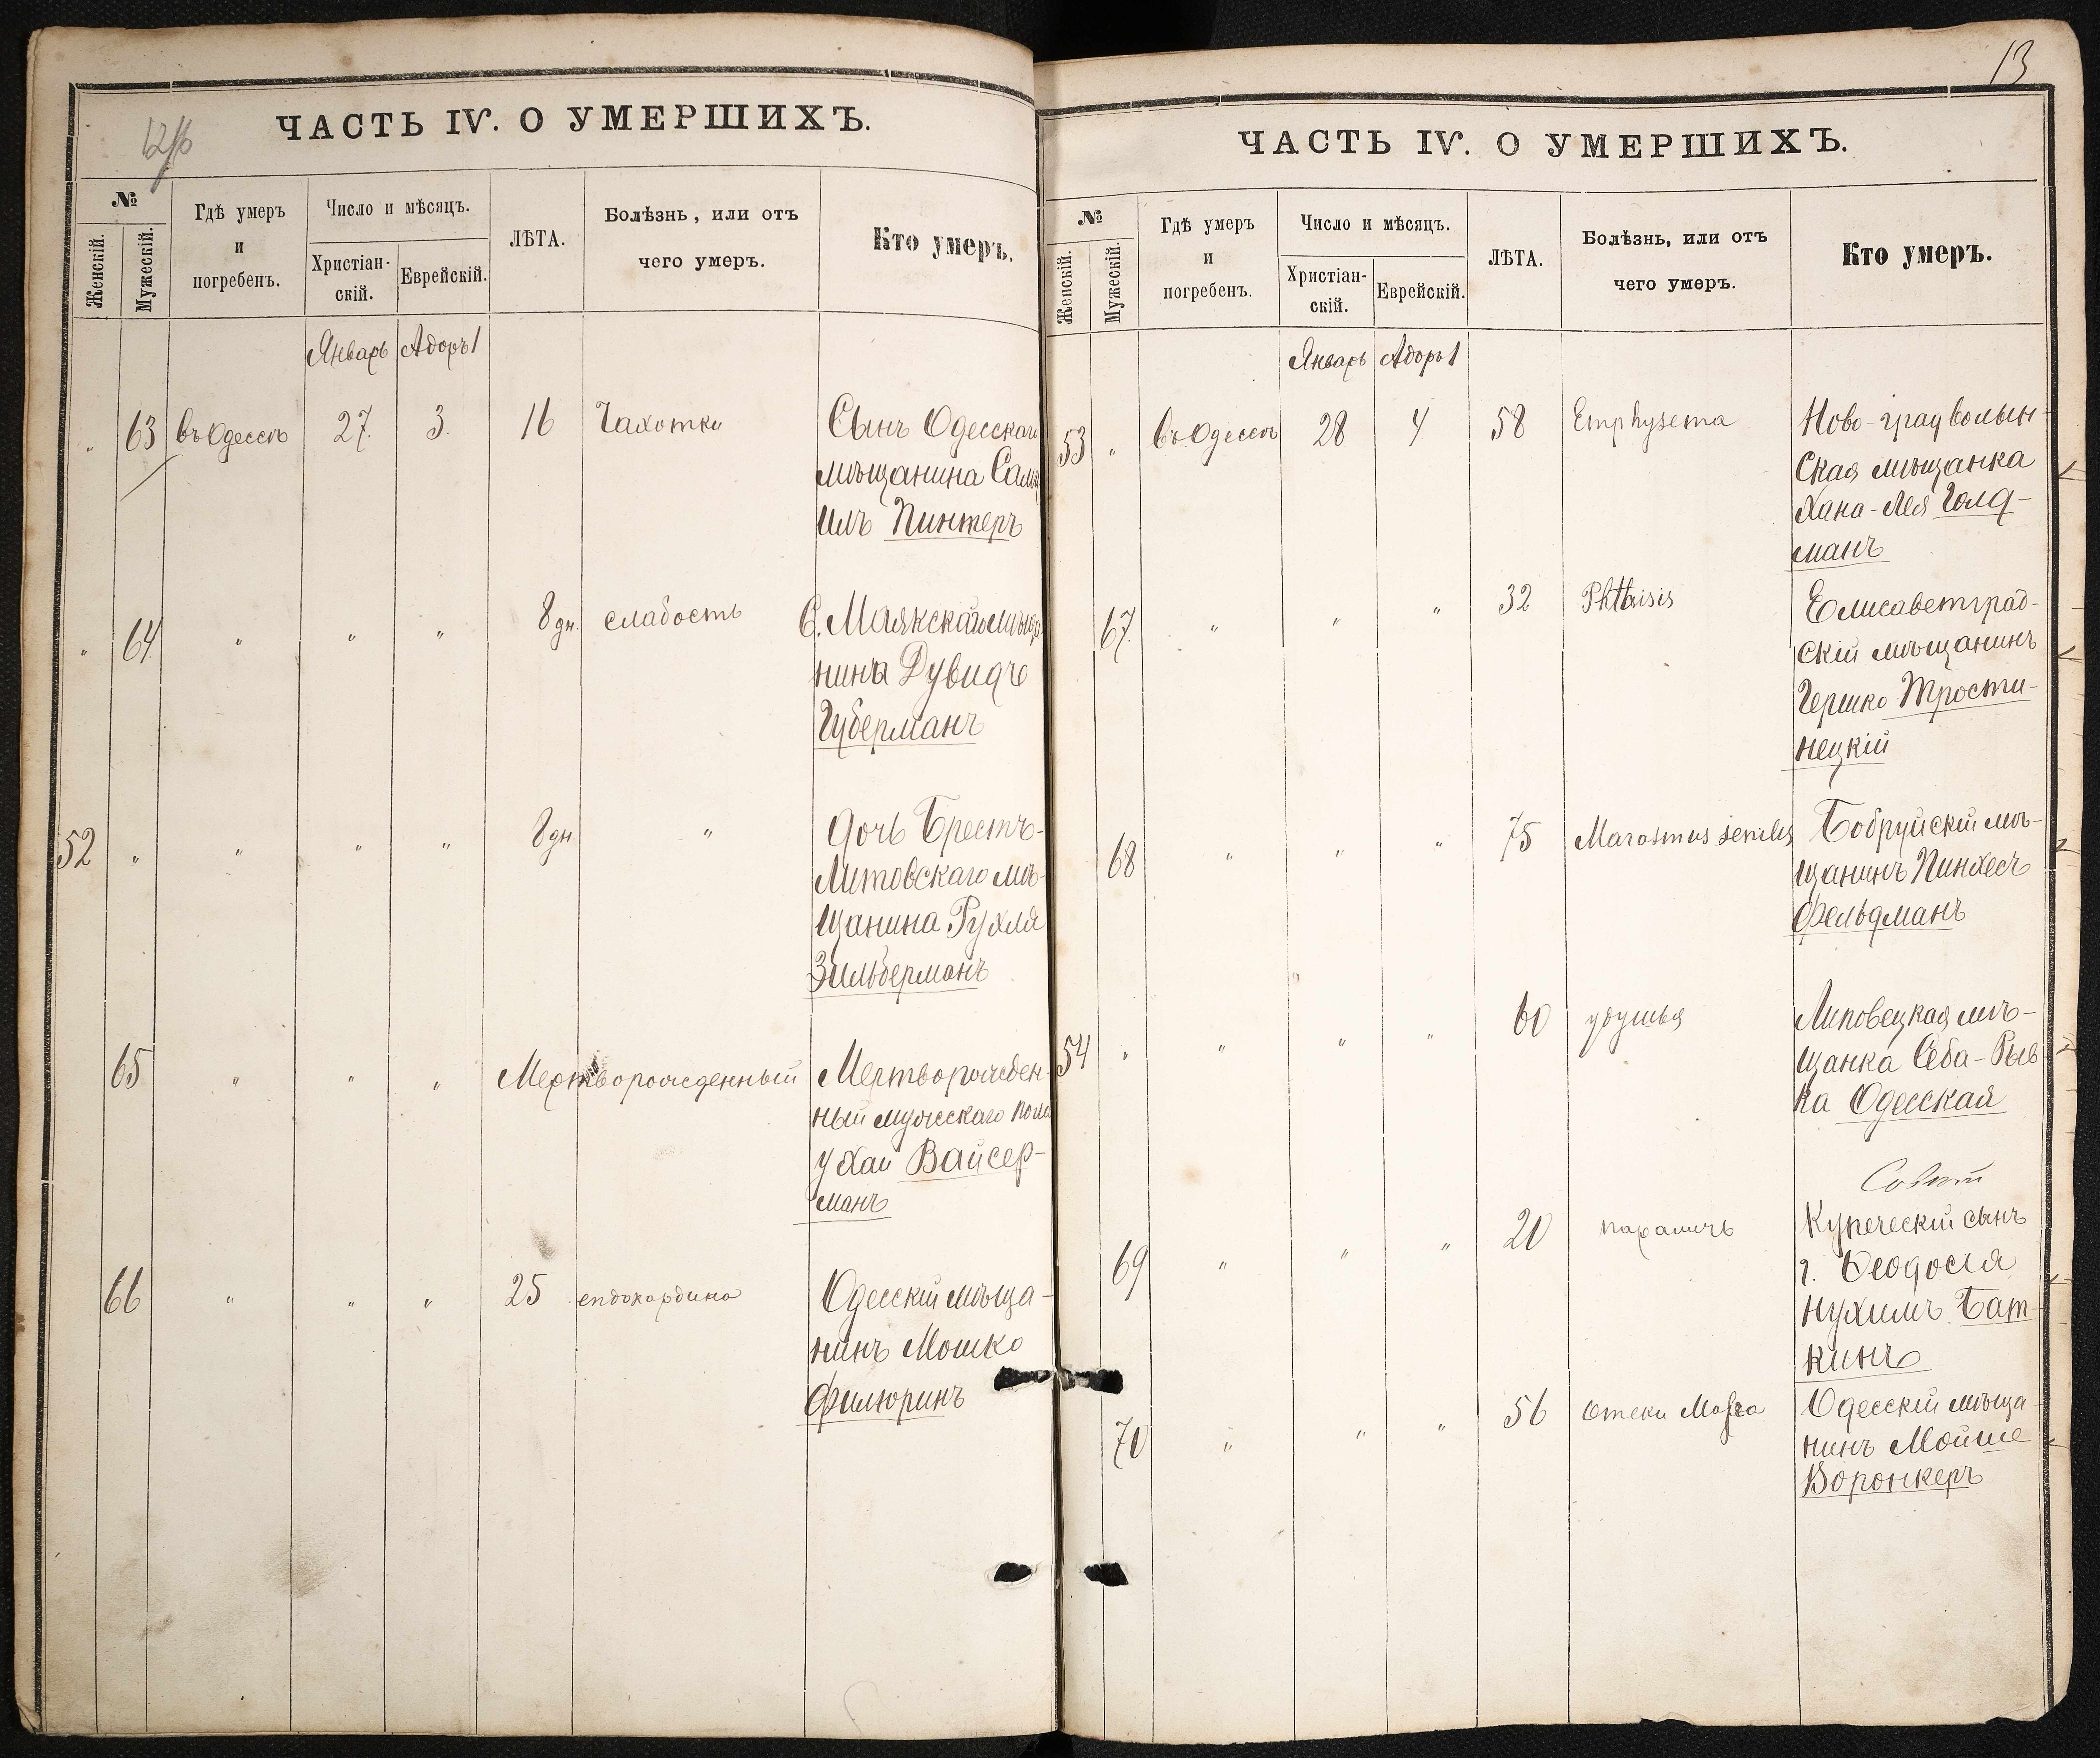 ЧАСТЬ IV. О УМЕРШИХЪ.
№
Женскій.
Мужескій.
Гдѣ умеръ
и
погребенъ.
Число и мѣсяцъ.
Христіан-
скій.
Еврейскій.
ЛѢТА.
Болѣзнь, или отъ
чего умеръ.
Кто умеръ.
Январь Адоръ 1
" 63 въ Одессѣ 27. 3. 16 Чахотки Сынъ Одесскаго
мѣщанина
Пинтеръ
" 64 " " " 8 дн. слабость С. Маякскаго мѣща
нина Дувидъ
Губерманъ
52 " " " " 8 дн " Дочь Брестъ-
Литовскаго мѣ-
щанина Рухля
Зильберманъ
65 " " " Мертворожденный Мертворожден-
ный мужескаго пола
у Хаи Вайсер-
манъ
66 " " " 25 Одесскій мѣща-
нинъ Мошко
Филюринъ
13
ЧАСТЬ IV. О УМЕРШИХЪ.
№
Женскій.
Мужескій.
Гдѣ умеръ
и
погребенъ.
Число и мѣсяцъ.
Христіан-
скій.
Еврейскій.
ЛѢТА.
Болѣзнь, или отъ
чего умеръ.
Кто умеръ.
Январь Адоръ 1
53 " въ Одессѣ 28 4 58 Emphysema Ново-градволын-
ская мѣщанка
Хана-Лея Голд-
манъ
67. " " " 32 Phthisis Елисаветград-
скій мѣщанинъ
Гершко Трости-
нецкій
68 " " " 75 Marasmus senilis Бобруйскій мѣ-
щанинъ Пинхесъ
Фельдманъ
54 " " " " 60 удушья Липовецкая мѣ-
щанка Себа-Рыв-
ка Одесская
69 " " " 20 параличъ Купеческій сынъ
г. Феодосія
Нухимъ Бат-
кинъ
70 " " " 56 Отеки Мозга Одесскій мѣща-
нинъ Мойше
Воронкеръ